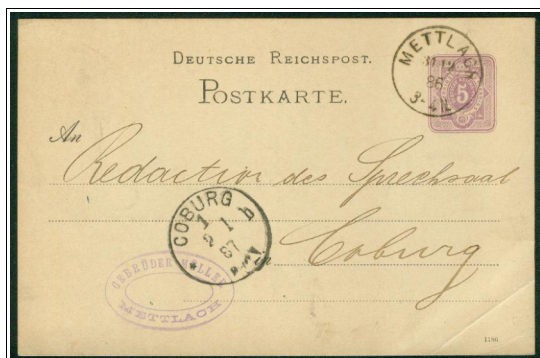 DEUTSCHE REICHSPOST.
POSTKARTE.
METTLACH
31 12
86
3-4 N.
5
An
Redaction des Sprechsaal
Coburg
COBURG
1
1
87
GEBRÜDER MÜLLER
METTLACH